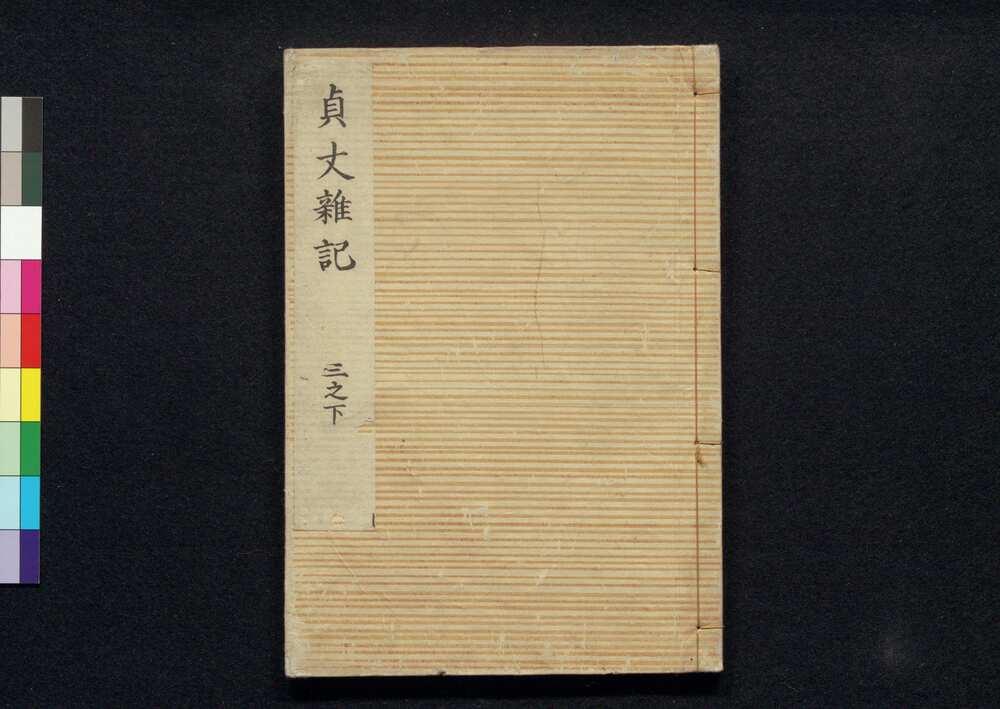 貞丈雜記
三之下